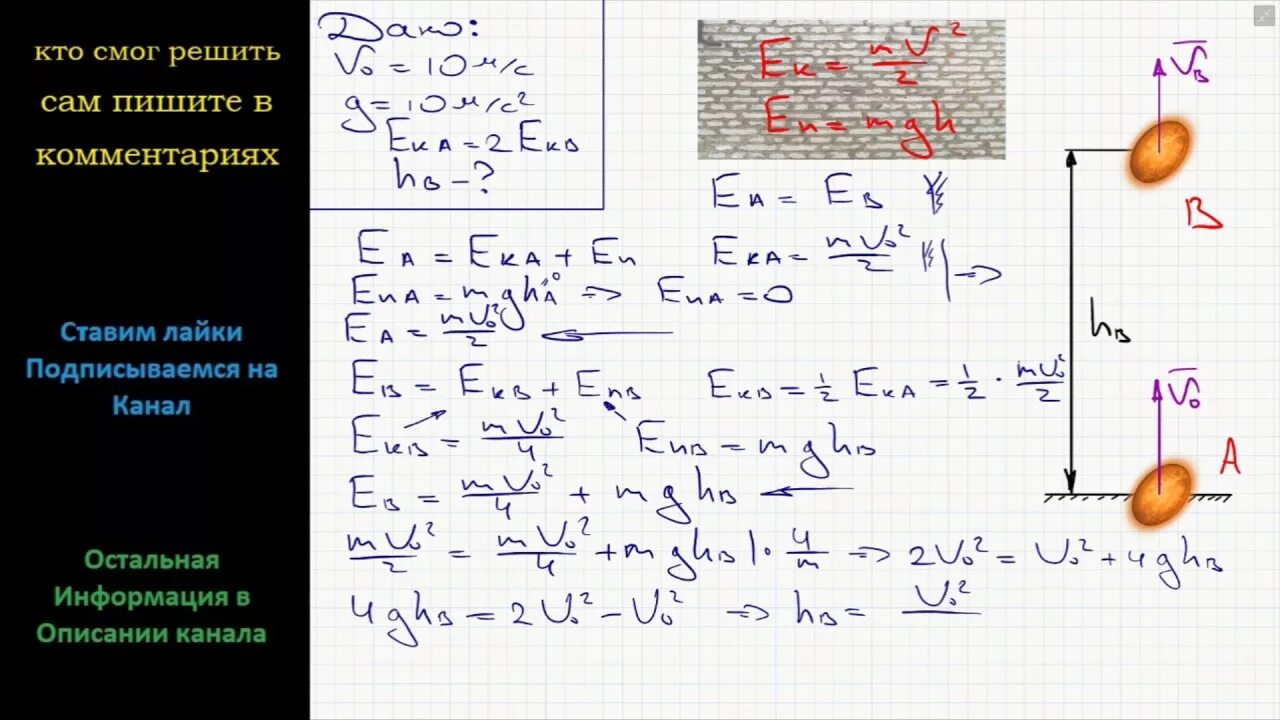 кто смог решить
сам пишите в
комментариях
Ставим лайки
Подписываемся на
Канал
Остальная
Информация в
Описании канала
Дано:
V₀ = 10 м/с
g = 10 м/с²
EкA = 2 EкB
hB - ?
Eк = mV²/2
Eп = mgh
EA = EB
EA = EкA + Eп
EкA = mV₀²/2 =>
EпA = mghA⁰ => EпA = 0
EA = mV₀²/2 ←
EB = EкB + EпB
EкB = 1/2 EкA = 1/2 · mV₀²/2
EкB = mV₀²/4
EпB = mghB
EB = mV₀²/4 + mghB ←
mV₀²/2 = mV₀²/4 + mghB | · 4/m => 2V₀² = V₀² + 4ghB
4ghB = 2V₀² - V₀² => hB = V₀²/
VB
B
hB
V₀
A